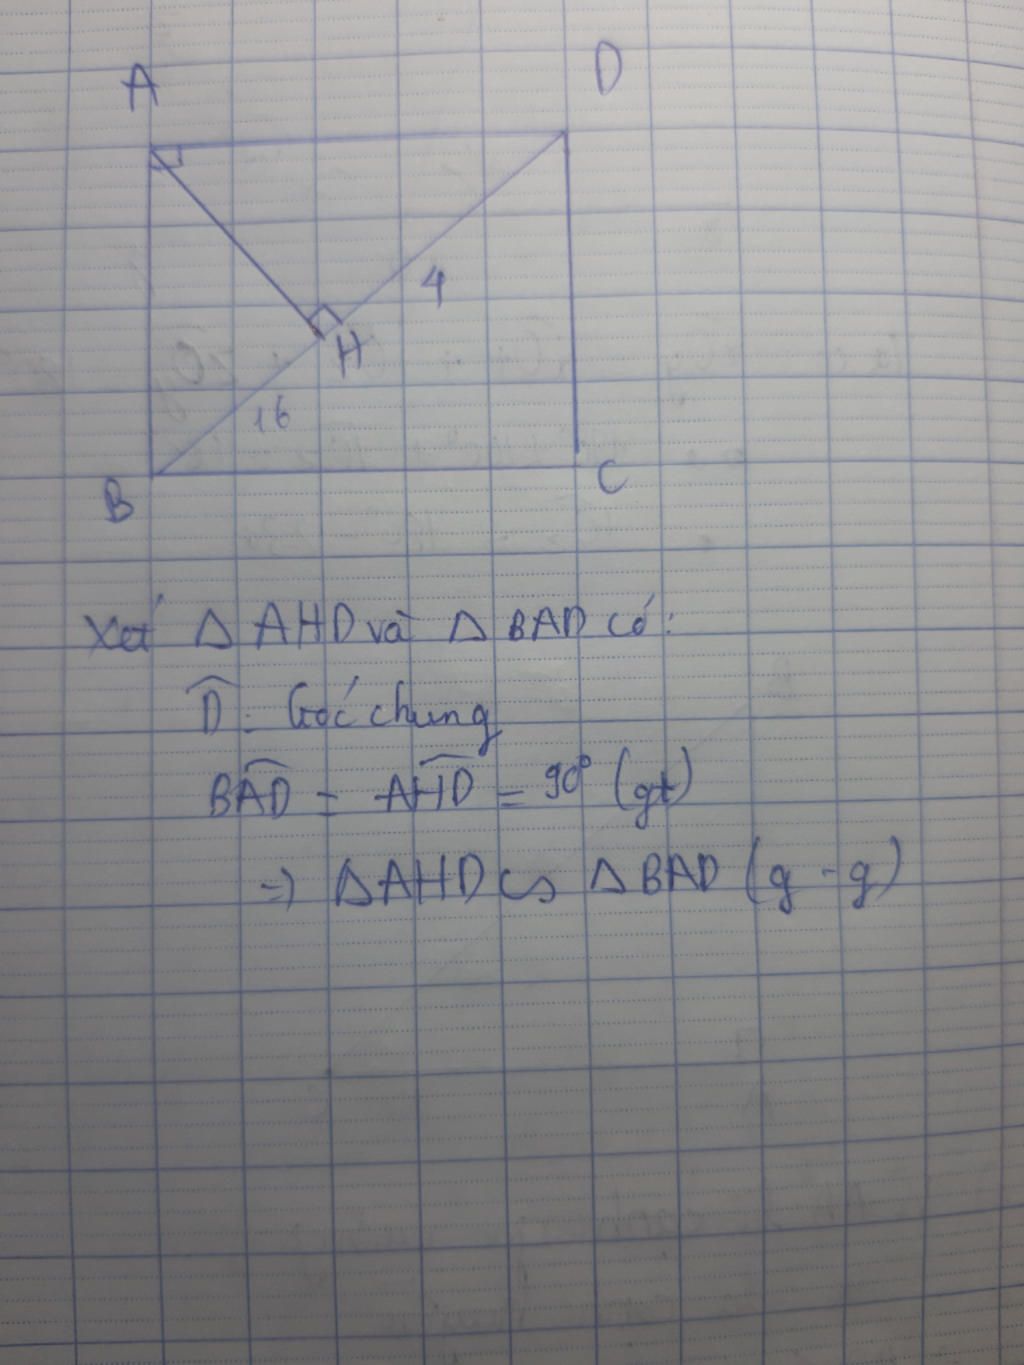 A
D
4
H
16
B
C
Xét Δ AHD và Δ BAD có:
D̂: Góc chung
BAD̂ = AHD̂ = 90° (gt)
=> ΔAHD ∽ Δ BAD (g - g)